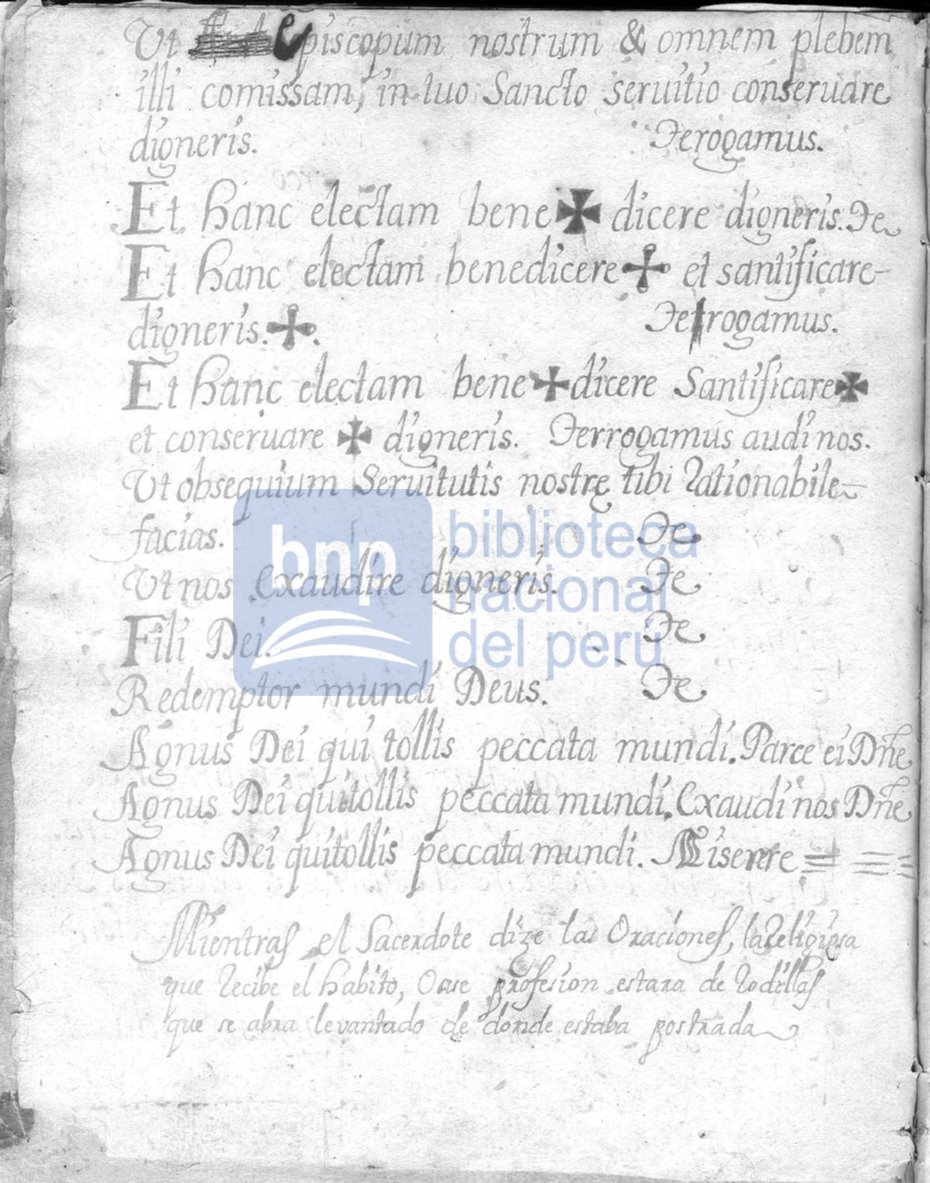 Ut Episcopum nostrum & omnem plebem
illi comissam, in tuo Sancto seruitio conseruare
digneris. Te rogamus.
Et hanc electam bene✠dicere digneris. Te
Et hanc electam benedicere✠ et santificare
digneris.✠. Te rogamus.
Et hanc electam bene✠dicere Santificare✠
et conseruare ✠ digneris. Te rrogamus audi nos.
Ut obsequium Seruitutis nostrę tibi rationabile
facias. Te
Ut nos Exaudire digneris. Te
Fili Dei. Te
Redemptor mundi Deus. Te
Agnus Dei qui tollis peccata mundi. Parce ei Dñe
Agnus Dei qui tollis peccata mundi. Exaudi nos Dñe
Agnus Dei qui tollis peccata mundi. Miserre
Mientras el Sacerdote dize las Oraciones, la Religiosa
que recibe el habito, O ase profesion estara de rodillas
que se abra levantado de donde estaba postrada
bnp biblioteca
nacional
del perú